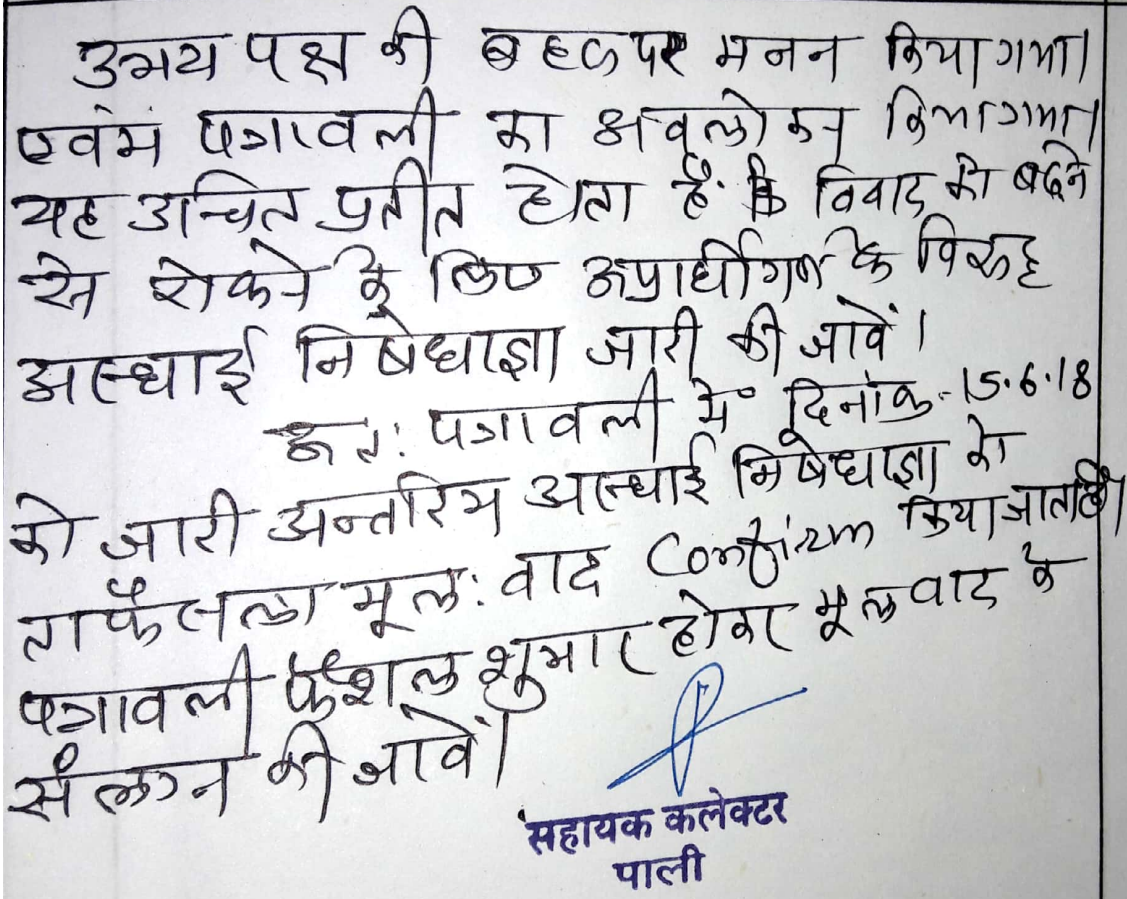 उभय पक्ष की बहस पर मनन किया गया।
एवंम पत्रावली का अवलोकन किया गया।
यह उचित प्रतीत होता है कि विवाद को बढने
से रोकने के लिए अप्रार्थीगण के विरुद्ध
अस्थाई निषेधाज्ञा जारी की जावें।
अतः पत्रावली में दिनांक-15.6.18
को जारी अन्तरिम अस्थाई निषेधाज्ञा को
ताफैसला मूल: वाद Confirm किया जाता है।
पत्रावली फैशल शुमार होकर मूल वाद के
संलग्न की जावें।
सहायक कलेक्टर
पाली